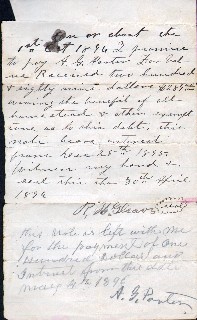 On or about the
1st Oct 1896 I promise
to pay A. G. Porter For Val
ue Received two hundred
& eighty nine dollars $289.00
waving the benefit of all
homestead & other exempt
ions as to this debt, this
note bears interest
from Dec 25th 1895.
Witness my hand &
seal this the 30th April
1896
R. H.
this note is left with me
for the payment of One
Hundred Dollars and
Intrest from this date
May 4th 1896
A. G. Porter